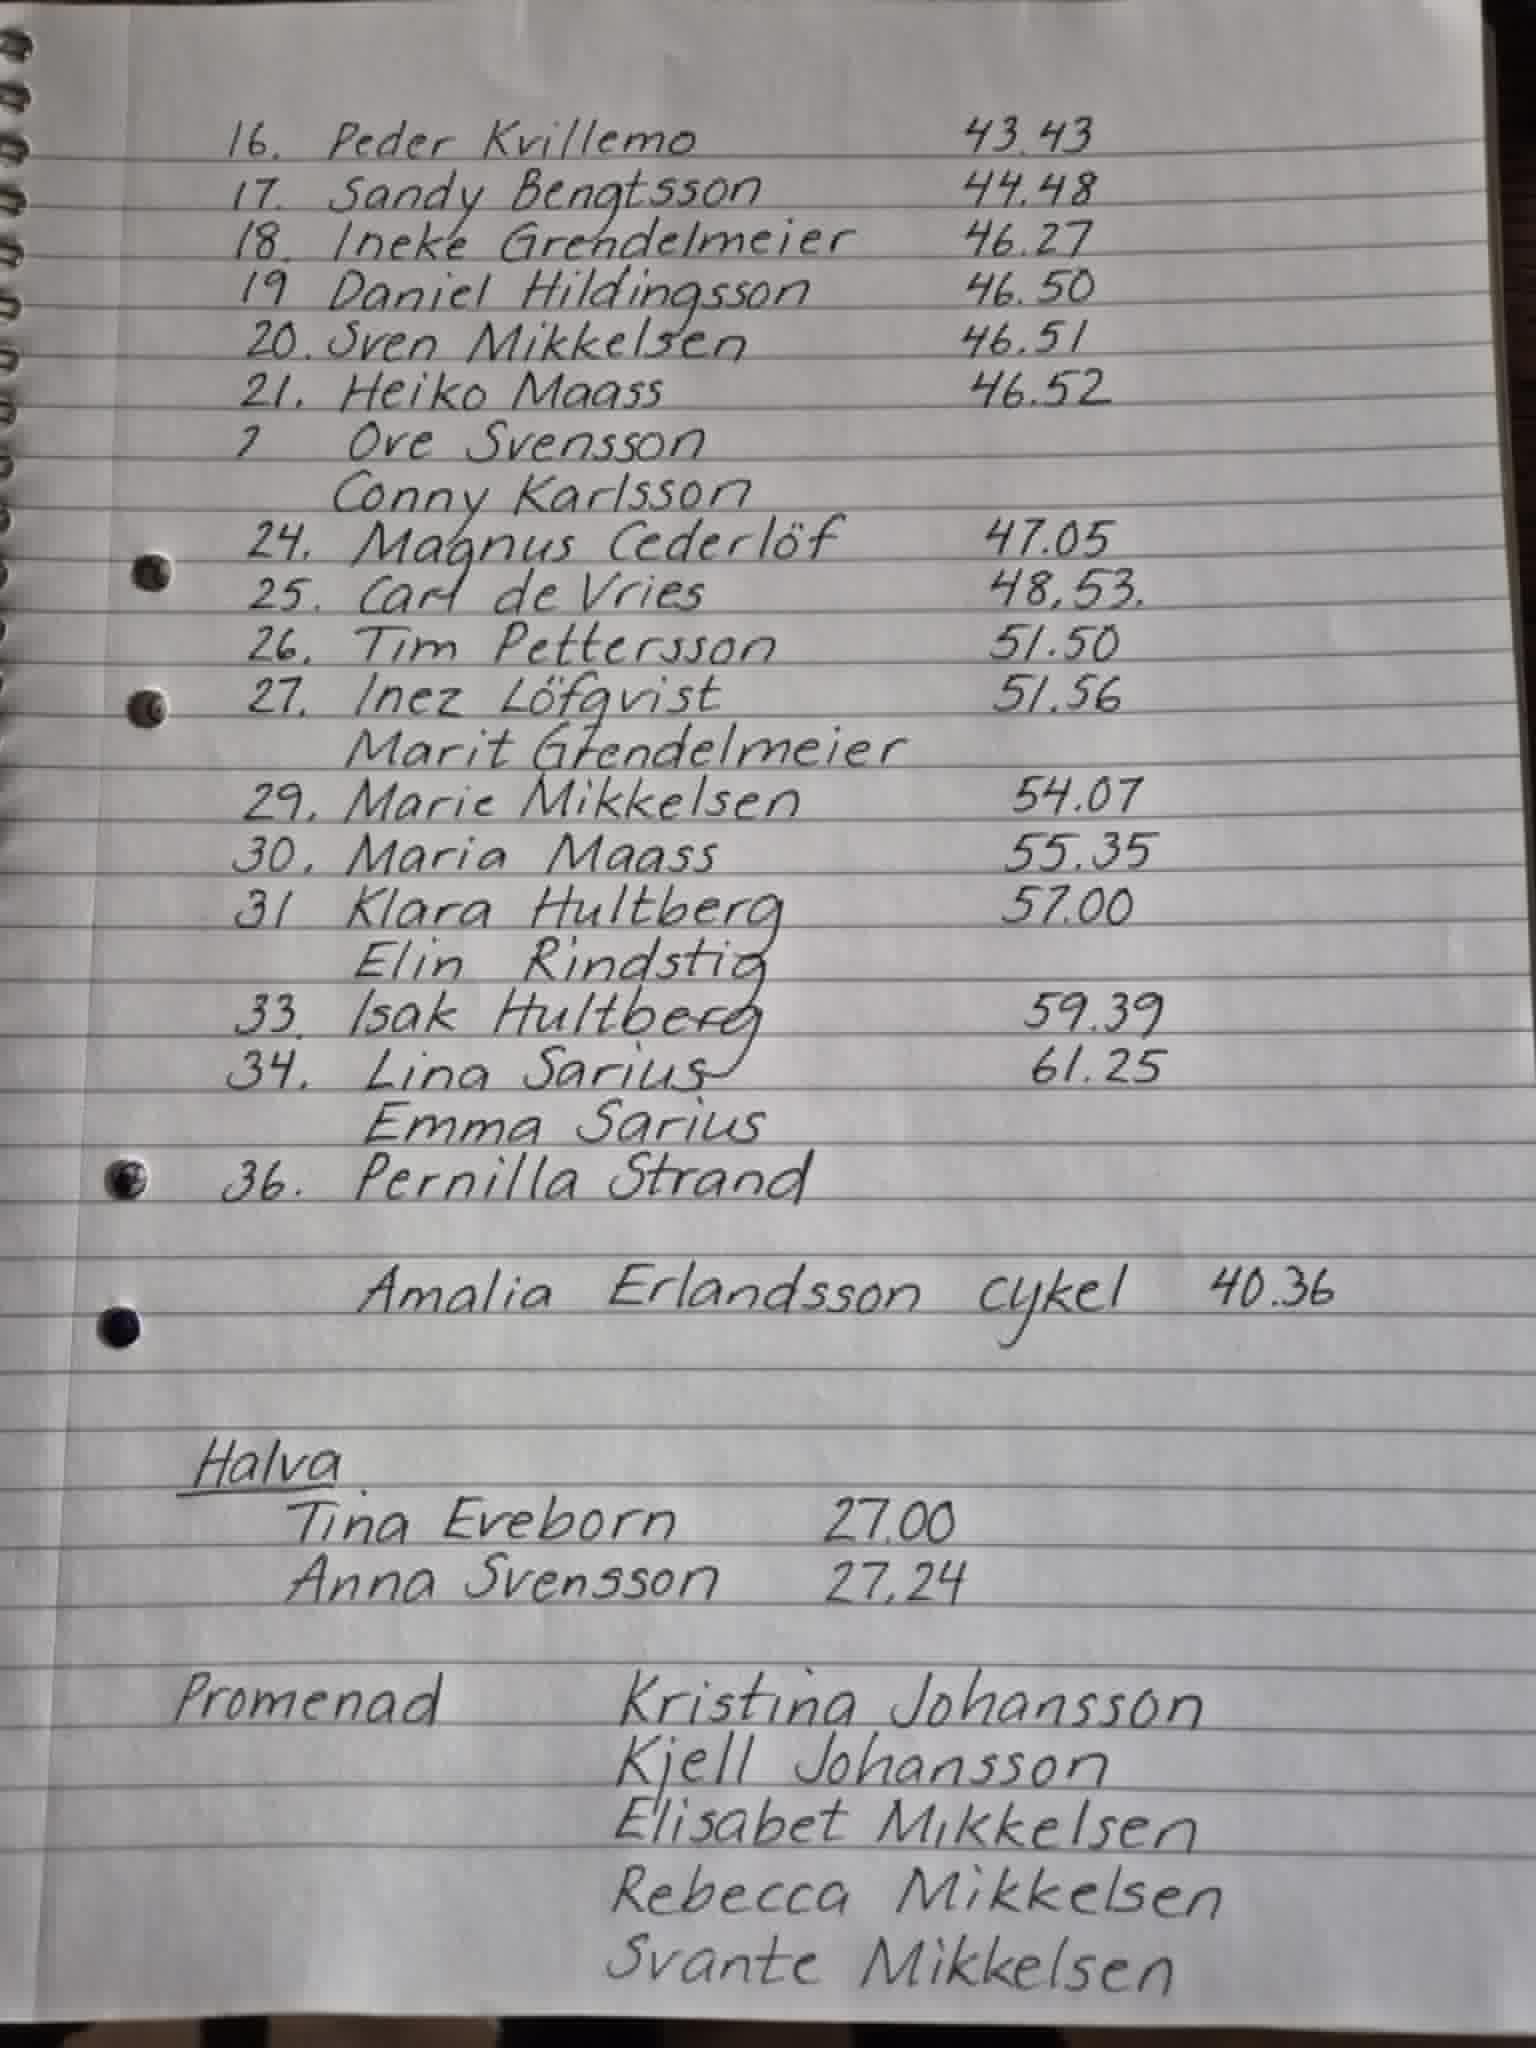 16. Peder Kvillemo 43.43
17. Sandy Bengtsson 44.48
18. Ineke Grendelmeier 46.27
19 Daniel Hildingsson 46.50
20. Sven Mikkelsen 46.51
21. Heiko Maass 46.52
? Ove Svensson
Conny Karlsson
24. Magnus Cederlöf 47.05
25. Carl de Vries 48.53.
26. Tim Pettersson 51.50
27. Inez Löfqvist 51.56
Marit Grendelmeier
29. Marie Mikkelsen 54.07
30. Maria Maass 55.35
31 Klara Hultberg 57.00
Elin Rindstig
33. Isak Hultberg 59.39
34. Lina Sarius 61.25
Emma Sarius
36. Pernilla Strand
Amalia Erlandsson cykel 40.36
Halva
Tina Eveborn 27.00
Anna Svensson 27.24
Promenad Kristina Johansson
Kjell Johansson
Elisabet Mikkelsen
Rebecca Mikkelsen
Svante Mikkelsen